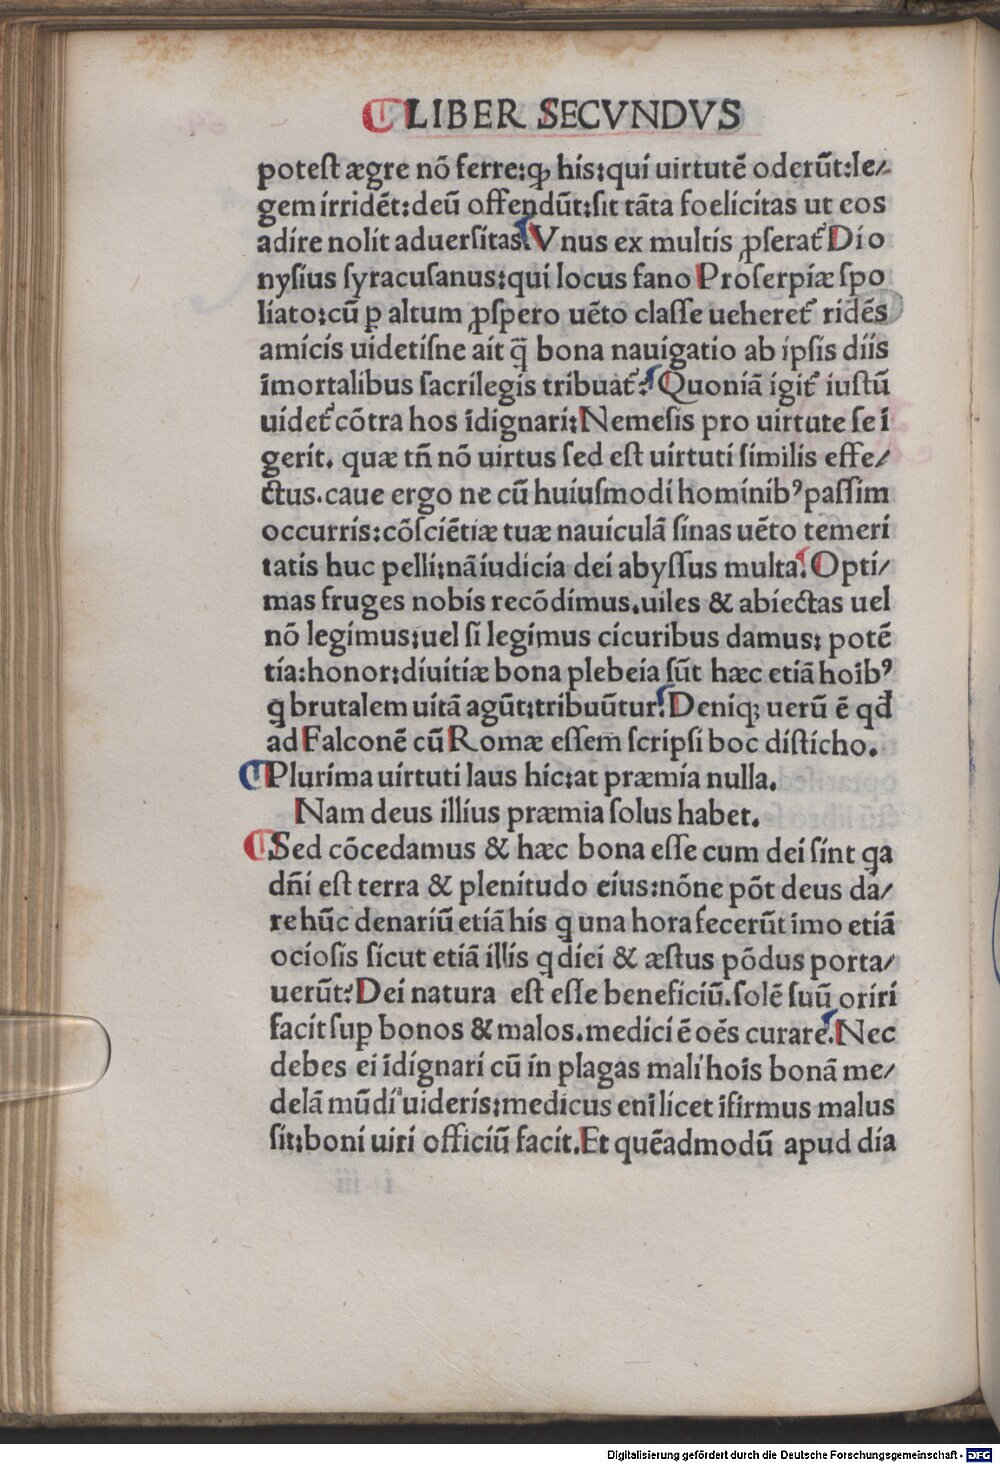 LIBER SECVNDVS
poteſt ægre nō ferre:ꝙ his:qui uirtutē oderūt:le/
gem irridēt:deū offendūt:ſit tāta foelicitas ut eos
adire nolit aduerſitas. Vnus ex multis ꝓſerat᷑ Dio
nyſius ſyracuſanus:qui locus fano Proſerpiæ ſpo
liato:cū ꝑ altum ꝓſpero uēto claſſe ueheret᷑ ridēs
amicis uidetiſne ait q̄ bona nauigatio ab ipſis diis
īmortalibus ſacrilegis tribuat᷑? Quoniā igit᷑ iuſtū
uidet᷑ cōtra hos īdignari:Nemeſis pro uirtute ſe ī
gerit. quæ tn̄ nō uirtus ſed eſt uirtuti ſimilis effe/
ctus.caue ergo ne cū huiuſmodi hominibꝰ paſſim
occurris:cōſciētiæ tuæ nauiculā ſinas uēto temeri
tatis huc pelli:nā iudicia dei abyſſus multa. Opti/
mas fruges nobis recōdimus.uiles & abiectas uel
nō legimus:uel ſi legimus cicuribus damus: potē
tia:honor:diuitiæ bona plebeia ſūt hæc etiā hoībꝰ
q brutalem uitā agūt:tribuūtur. Deniqꝫ uerū ē qđ
ad Falconē cū Romæ eſſem ſcripſi hoc diſticho.
Plurima uirtuti laus hic:at præmia nulla.
Nam deus illius præmia ſolus habet.
Sed cōcedamus & hæc bona eſſe cum dei ſint qa
dn̄i eſt terra & plenitudo eius:nōne pōt deus da/
re hūc denariū etiā his q una hora fecerūt imo etiā
ocioſis ſicut etiā illis q diei & æſtus pōdus porta/
uerūt? Dei natura eſt eſſe beneficiū.ſolē ſuū oriri
facit ſuꝑ bonos & malos.medici ē oēs curare. Nec
debes ei īdignari cū in plagas mali hoīs bonā me/
delā mūdi uideris:medicus enī licet īfirmus malus
ſit:boni uiri officiū facit. Et quēadmodū apud dia
Digitalisierung gefördert durch die Deutsche Forschungsgemeinschaft - DFG